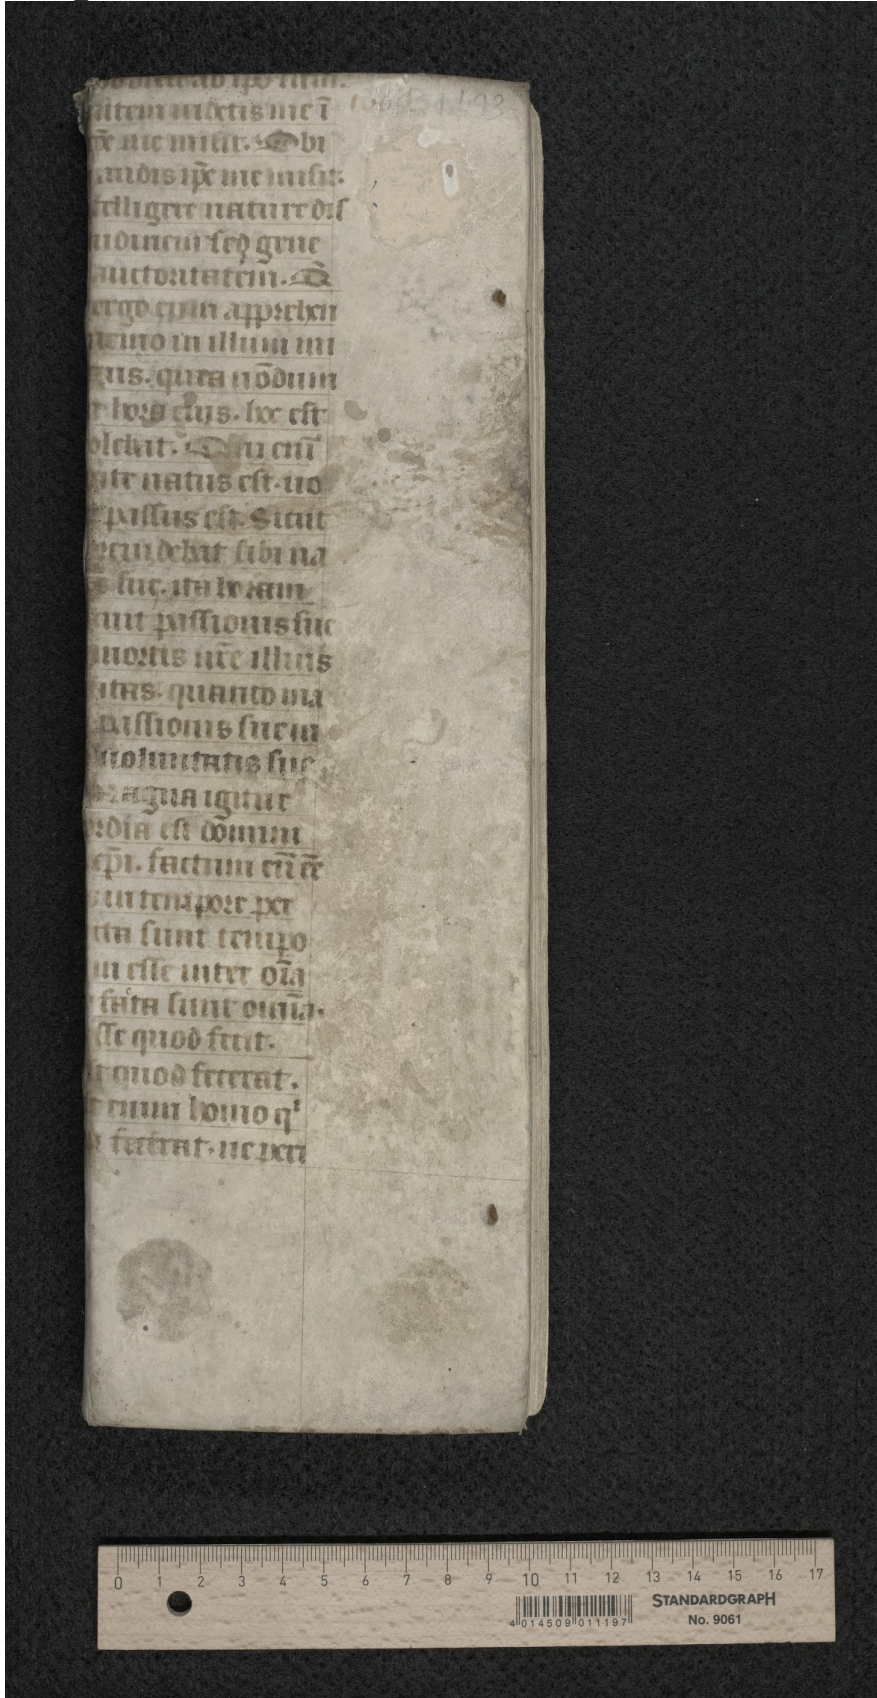 ntem uidetis me ī
me misit. Qbi
audis ipē me misit.
telligere nature dis
udinem seꝗ gene
auctoritatem. Q̄
ergo eum apprehen
nemo in illum mi
nus. quia nōdum
t hora eius. hoc est
olebat. enī
ate natus est. no
passus est. Sicut
endebat sibi na
sue. ita horam
uit passionis sue
mortis nr̄e illius
itas. quanto ma
passionis sue in
uoluntatis sue
agna igitur
ordia est dominī
xp̄i. factum eū eē
s in tempore per
cta sunt tempo
m esse inter oīa
facta sunt omīa.
sse quod fecit.
r quod fecerat.
t enim homo qͥ
fecerat. ne peri
0 1 2 3 4 5 6 7 8 9 10 11 12 13 14 15 16 17
STANDARDGRAPH
No. 9061
4 014509 011197